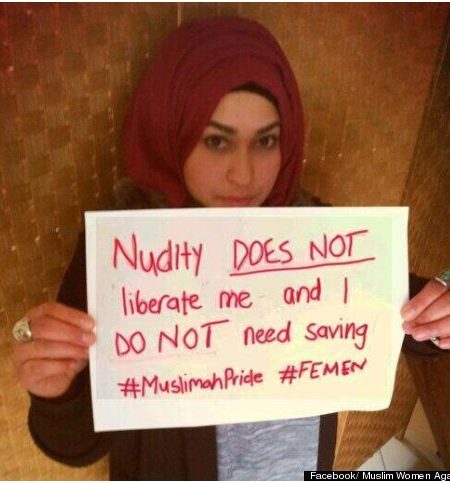 Nudity DOES NOT
liberate me and I
DO NOT need saving
#MuslimahPride #FEMEN
Facebook/ Muslim Women Aga